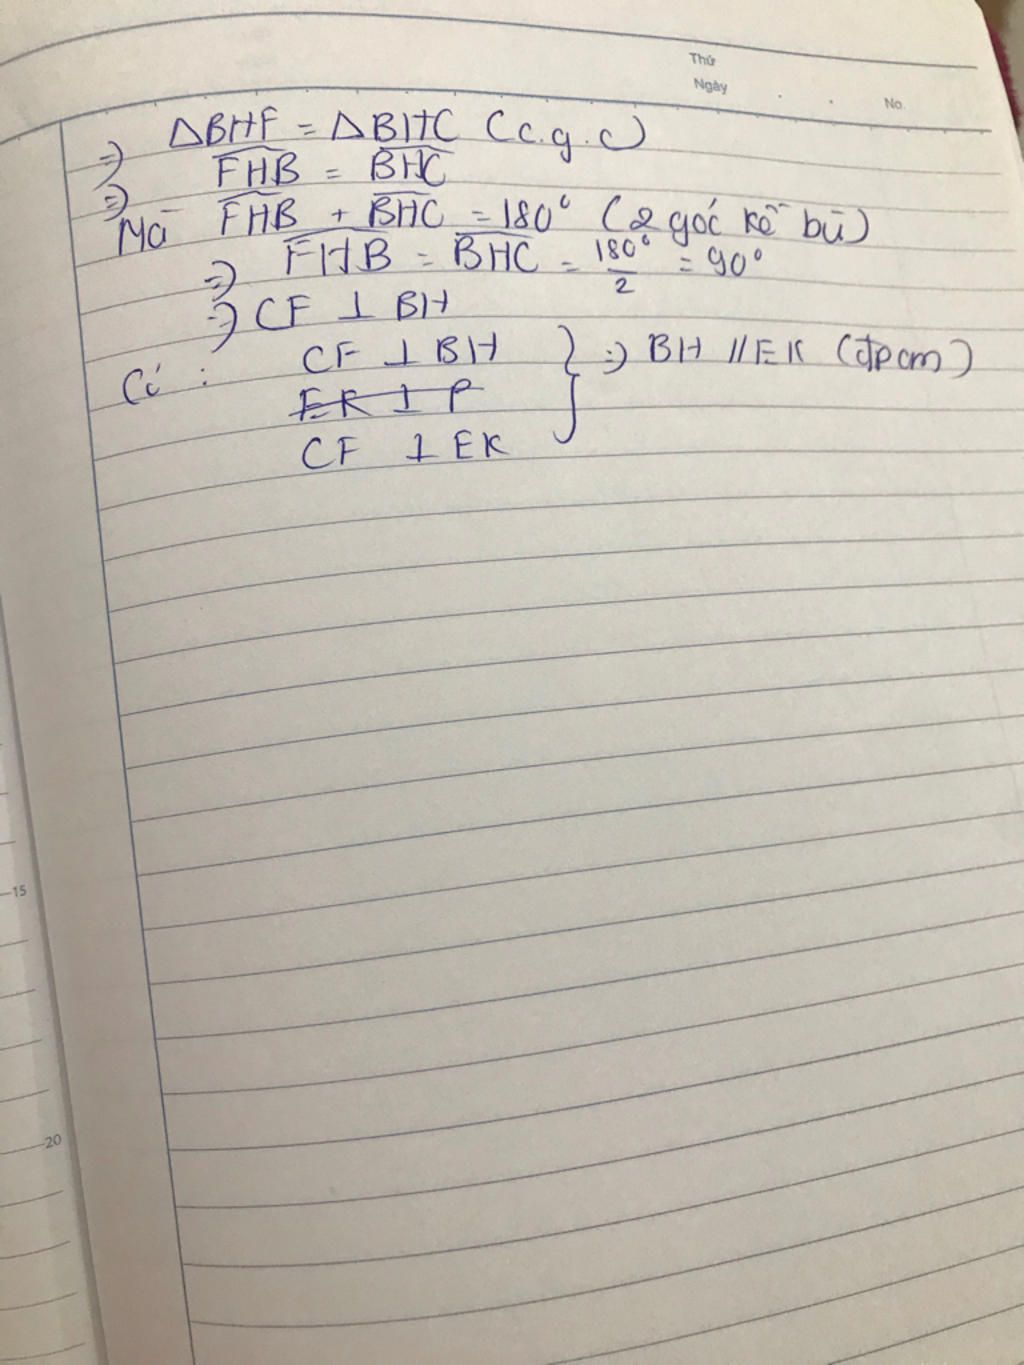 Thứ
Ngày . . No.
=> ΔBHF = ΔBHC (c.g.c)
=> FHB = BHC
Mà FHB + BHC = 180° (2 góc kề bù)
=> FHB = BHC = 180°/2 = 90°
=> CF ⊥ BH
Có : CF ⊥ BH } => BH // EK (đpcm)
EK ⊥ P
CF ⊥ EK
15
20